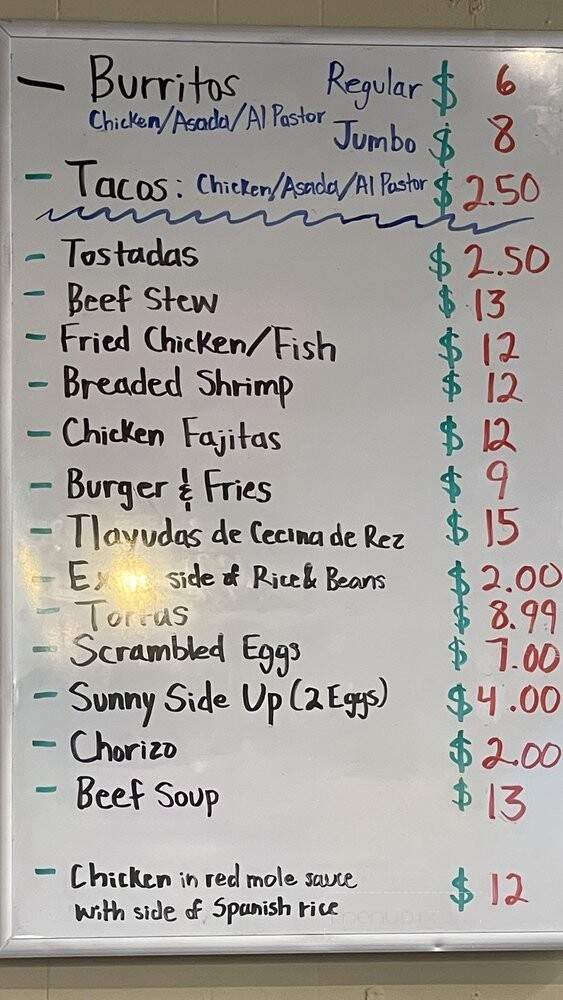 - Burritos Regular $ 6
Chicken/Asada/Al Pastor Jumbo $ 8
- Tacos: Chicken/Asada/Al Pastor $ 2.50
- Tostadas $ 2.50
- Beef Stew $ 13
- Fried Chicken/Fish $ 12
- Breaded Shrimp $ 12
- Chicken Fajitas $ 12
- Burger & Fries $ 9
- Tlayudas de Cecina de Rez $ 15
- Extra side of Rice & Beans $ 2.00
- Tortas $ 8.99
- Scrambled Eggs $ 7.00
- Sunny Side Up (2 Eggs) $ 4.00
- Chorizo $ 2.00
- Beef Soup $ 13
- Chicken in red mole sauce $ 12
with side of Spanish rice